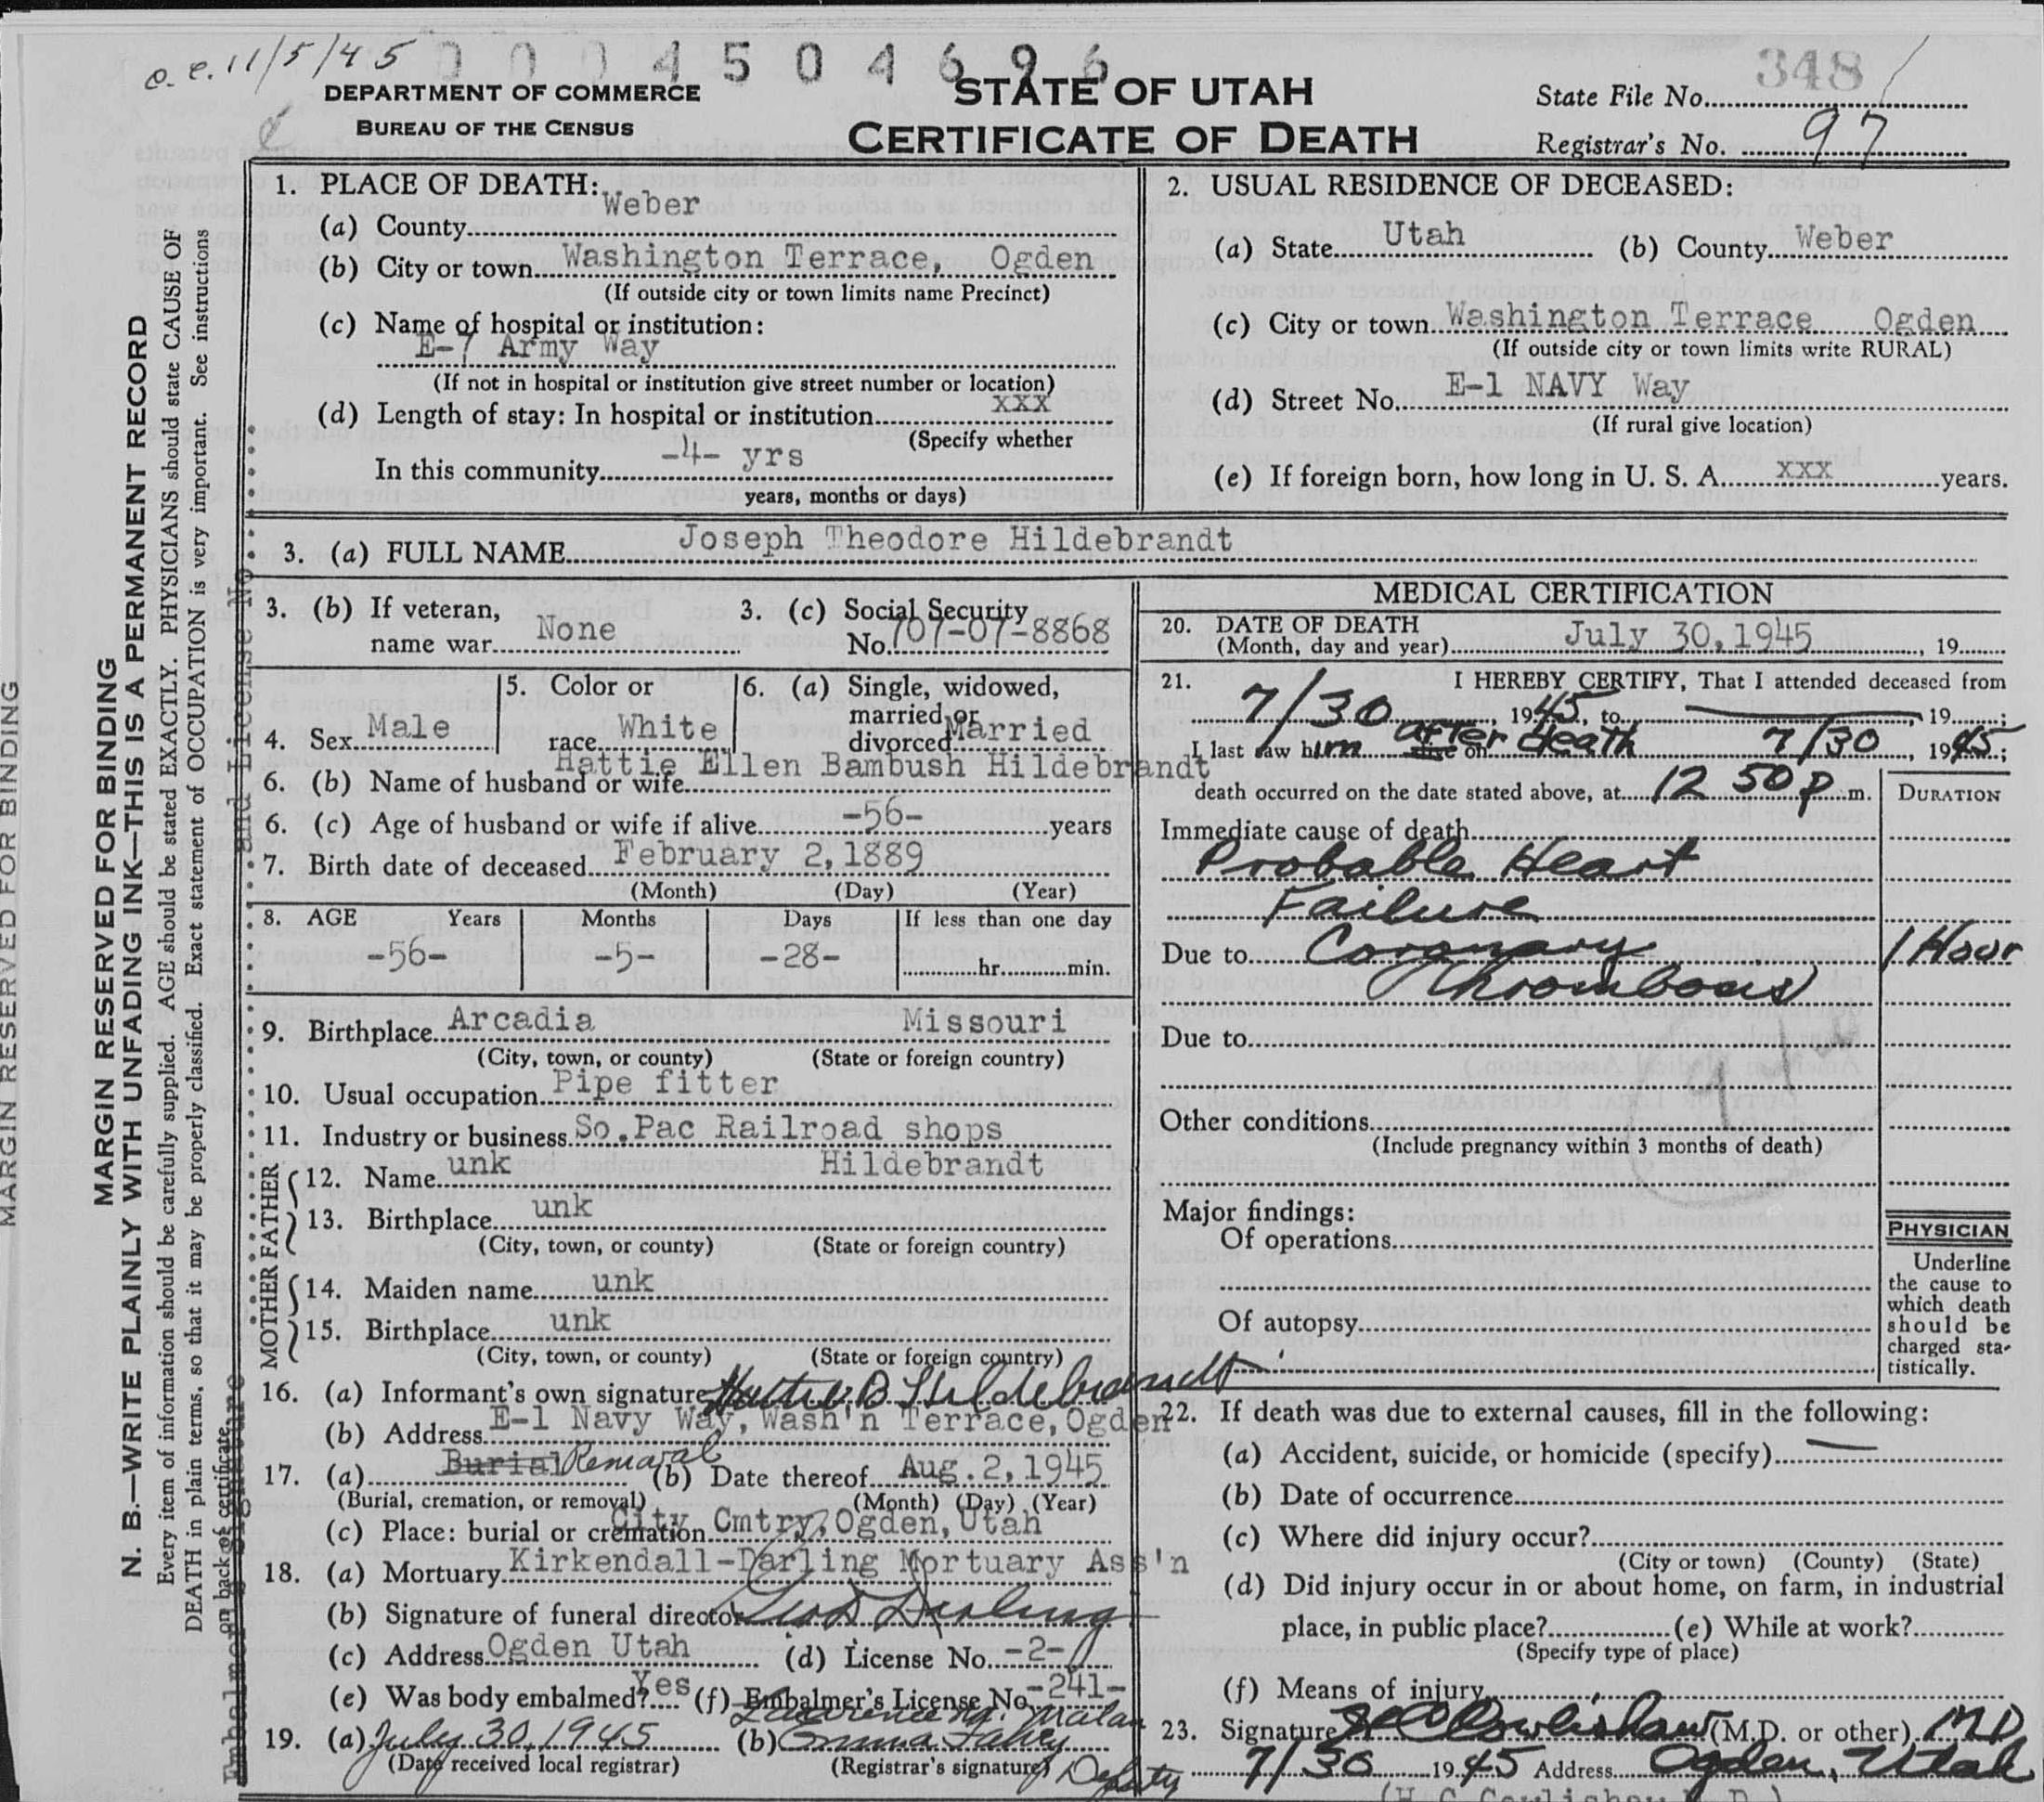 o. c. 11/5/45
0 0 0 4 5 0 4 6 9 6
348
DEPARTMENT OF COMMERCE
BUREAU OF THE CENSUS
STATE OF UTAH
CERTIFICATE OF DEATH
State File No.
Registrar's No. 97
MARGIN RESERVED FOR BINDING
MARGIN RESERVED FOR BINDING
N. B.—WRITE PLAINLY WITH UNFADING INK—THIS IS A PERMANENT RECORD
Every item of information should be carefully supplied. AGE should be stated EXACTLY. PHYSICIANS should state CAUSE OF
DEATH in plain terms, so that it may be properly classified. Exact statement of OCCUPATION is very important. See instructions
on back of certificate
Embalmer's Signature and License No.
1. PLACE OF DEATH:
(a) County Weber
(b) City or town Washington Terrace, Ogden
(If outside city or town limits name Precinct)
(c) Name of hospital or institution:
E-7 Army Way
(If not in hospital or institution give street number or location)
(d) Length of stay: In hospital or institution xxx
(Specify whether
In this community -4- yrs
years, months or days)
2. USUAL RESIDENCE OF DECEASED:
(a) State Utah (b) County Weber
(c) City or town Washington Terrace Ogden
(If outside city or town limits write RURAL)
(d) Street No. E-1 NAVY Way
(If rural give location)
(e) If foreign born, how long in U. S. A. xxx years.
3. (a) FULL NAME Joseph Theodore Hildebrandt
3. (b) If veteran,
name war None
3. (c) Social Security
No. 707-07-8868
4. Sex Male
5. Color or
race White
6. (a) Single, widowed,
married, or
divorced Married
6. (b) Name of husband or wife Hattie Ellen Bambush Hildebrandt
6. (c) Age of husband or wife if alive -56- years
7. Birth date of deceased February 2, 1889
(Month) (Day) (Year)
8. AGE Years Months Days If less than one day
-56- -5- -28- hr. min.
9. Birthplace Arcadia Missouri
(City, town, or county) (State or foreign country)
10. Usual occupation Pipe fitter
11. Industry or business So. Pac Railroad shops
FATHER
12. Name unk Hildebrandt
13. Birthplace unk
(City, town, or county) (State or foreign country)
MOTHER
14. Maiden name unk
15. Birthplace unk
(City, town, or county) (State or foreign country)
16. (a) Informant's own signature Hattie B Hildebrandt
(b) Address E-1 Navy Way, Wash'n Terrace, Ogden
17. (a) Burial Removal (b) Date thereof Aug. 2, 1945
(Burial, cremation, or removal) (Month) (Day) (Year)
(c) Place: burial or cremation City Cmtry, Ogden, Utah
18. (a) Mortuary Kirkendall-Darling Mortuary Ass'n
(b) Signature of funeral director Darling
(c) Address Ogden Utah (d) License No. -2-
(e) Was body embalmed? Yes (f) Embalmer's License No. -241-
Lawrence M. Malan
19. (a) July 30, 1945 (b) Emma Fahey
(Date received local registrar) (Registrar's signature) Deputy
MEDICAL CERTIFICATION
20. DATE OF DEATH
(Month, day and year) July 30, 1945, 19
21. I HEREBY CERTIFY, That I attended deceased from
7/30, 1945, to , 19 ;
I last saw him alive on after death 7/30, 1945;
death occurred on the date stated above, at 12 50 p m.
DURATION
Immediate cause of death
Probable Heart
Failure
Due to Coronary 1 Hour
Thrombosis
Due to
Other conditions
(Include pregnancy within 3 months of death)
Major findings:
Of operations
Of autopsy
PHYSICIAN
Underline
the cause to
which death
should be
charged sta-
tistically.
22. If death was due to external causes, fill in the following:
(a) Accident, suicide, or homicide (specify)
(b) Date of occurrence
(c) Where did injury occur?
(City or town) (County) (State)
(d) Did injury occur in or about home, on farm, in industrial
place, in public place? (e) While at work?
(Specify type of place)
(f) Means of injury
23. Signature H C Cowlishaw (M.D. or other) MD
7/30 1945 Address Ogden, Utah
(H C Cowlishaw M. D.)